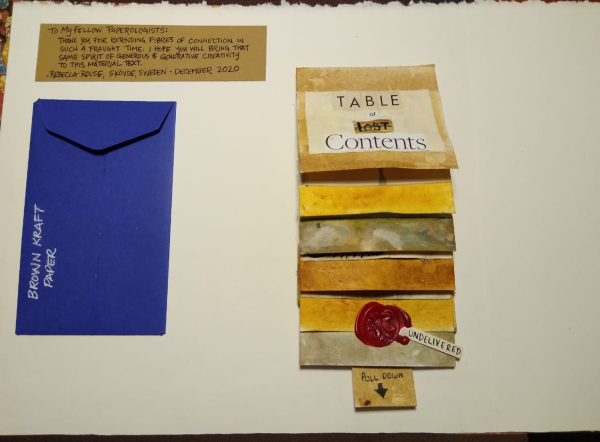 TO MY FELLOW PAPEROLOGISTS:
THANK YOU FOR EXTENDING FIBRES OF CONNECTION IN
SUCH A FRAUGHT TIME. I HOPE YOU WILL BRING THAT
SAME SPIRIT OF GENEROUS & GENERATIVE CREATIVITY
TO THIS MATERIAL TEXT.
-REBECCA ROUSE, SKÖVDE, SWEDEN - DECEMBER 2020
BROWN KRAFT
PAPER
TABLE
OF
LOST
Contents
UNDELIVERED
PULL DOWN